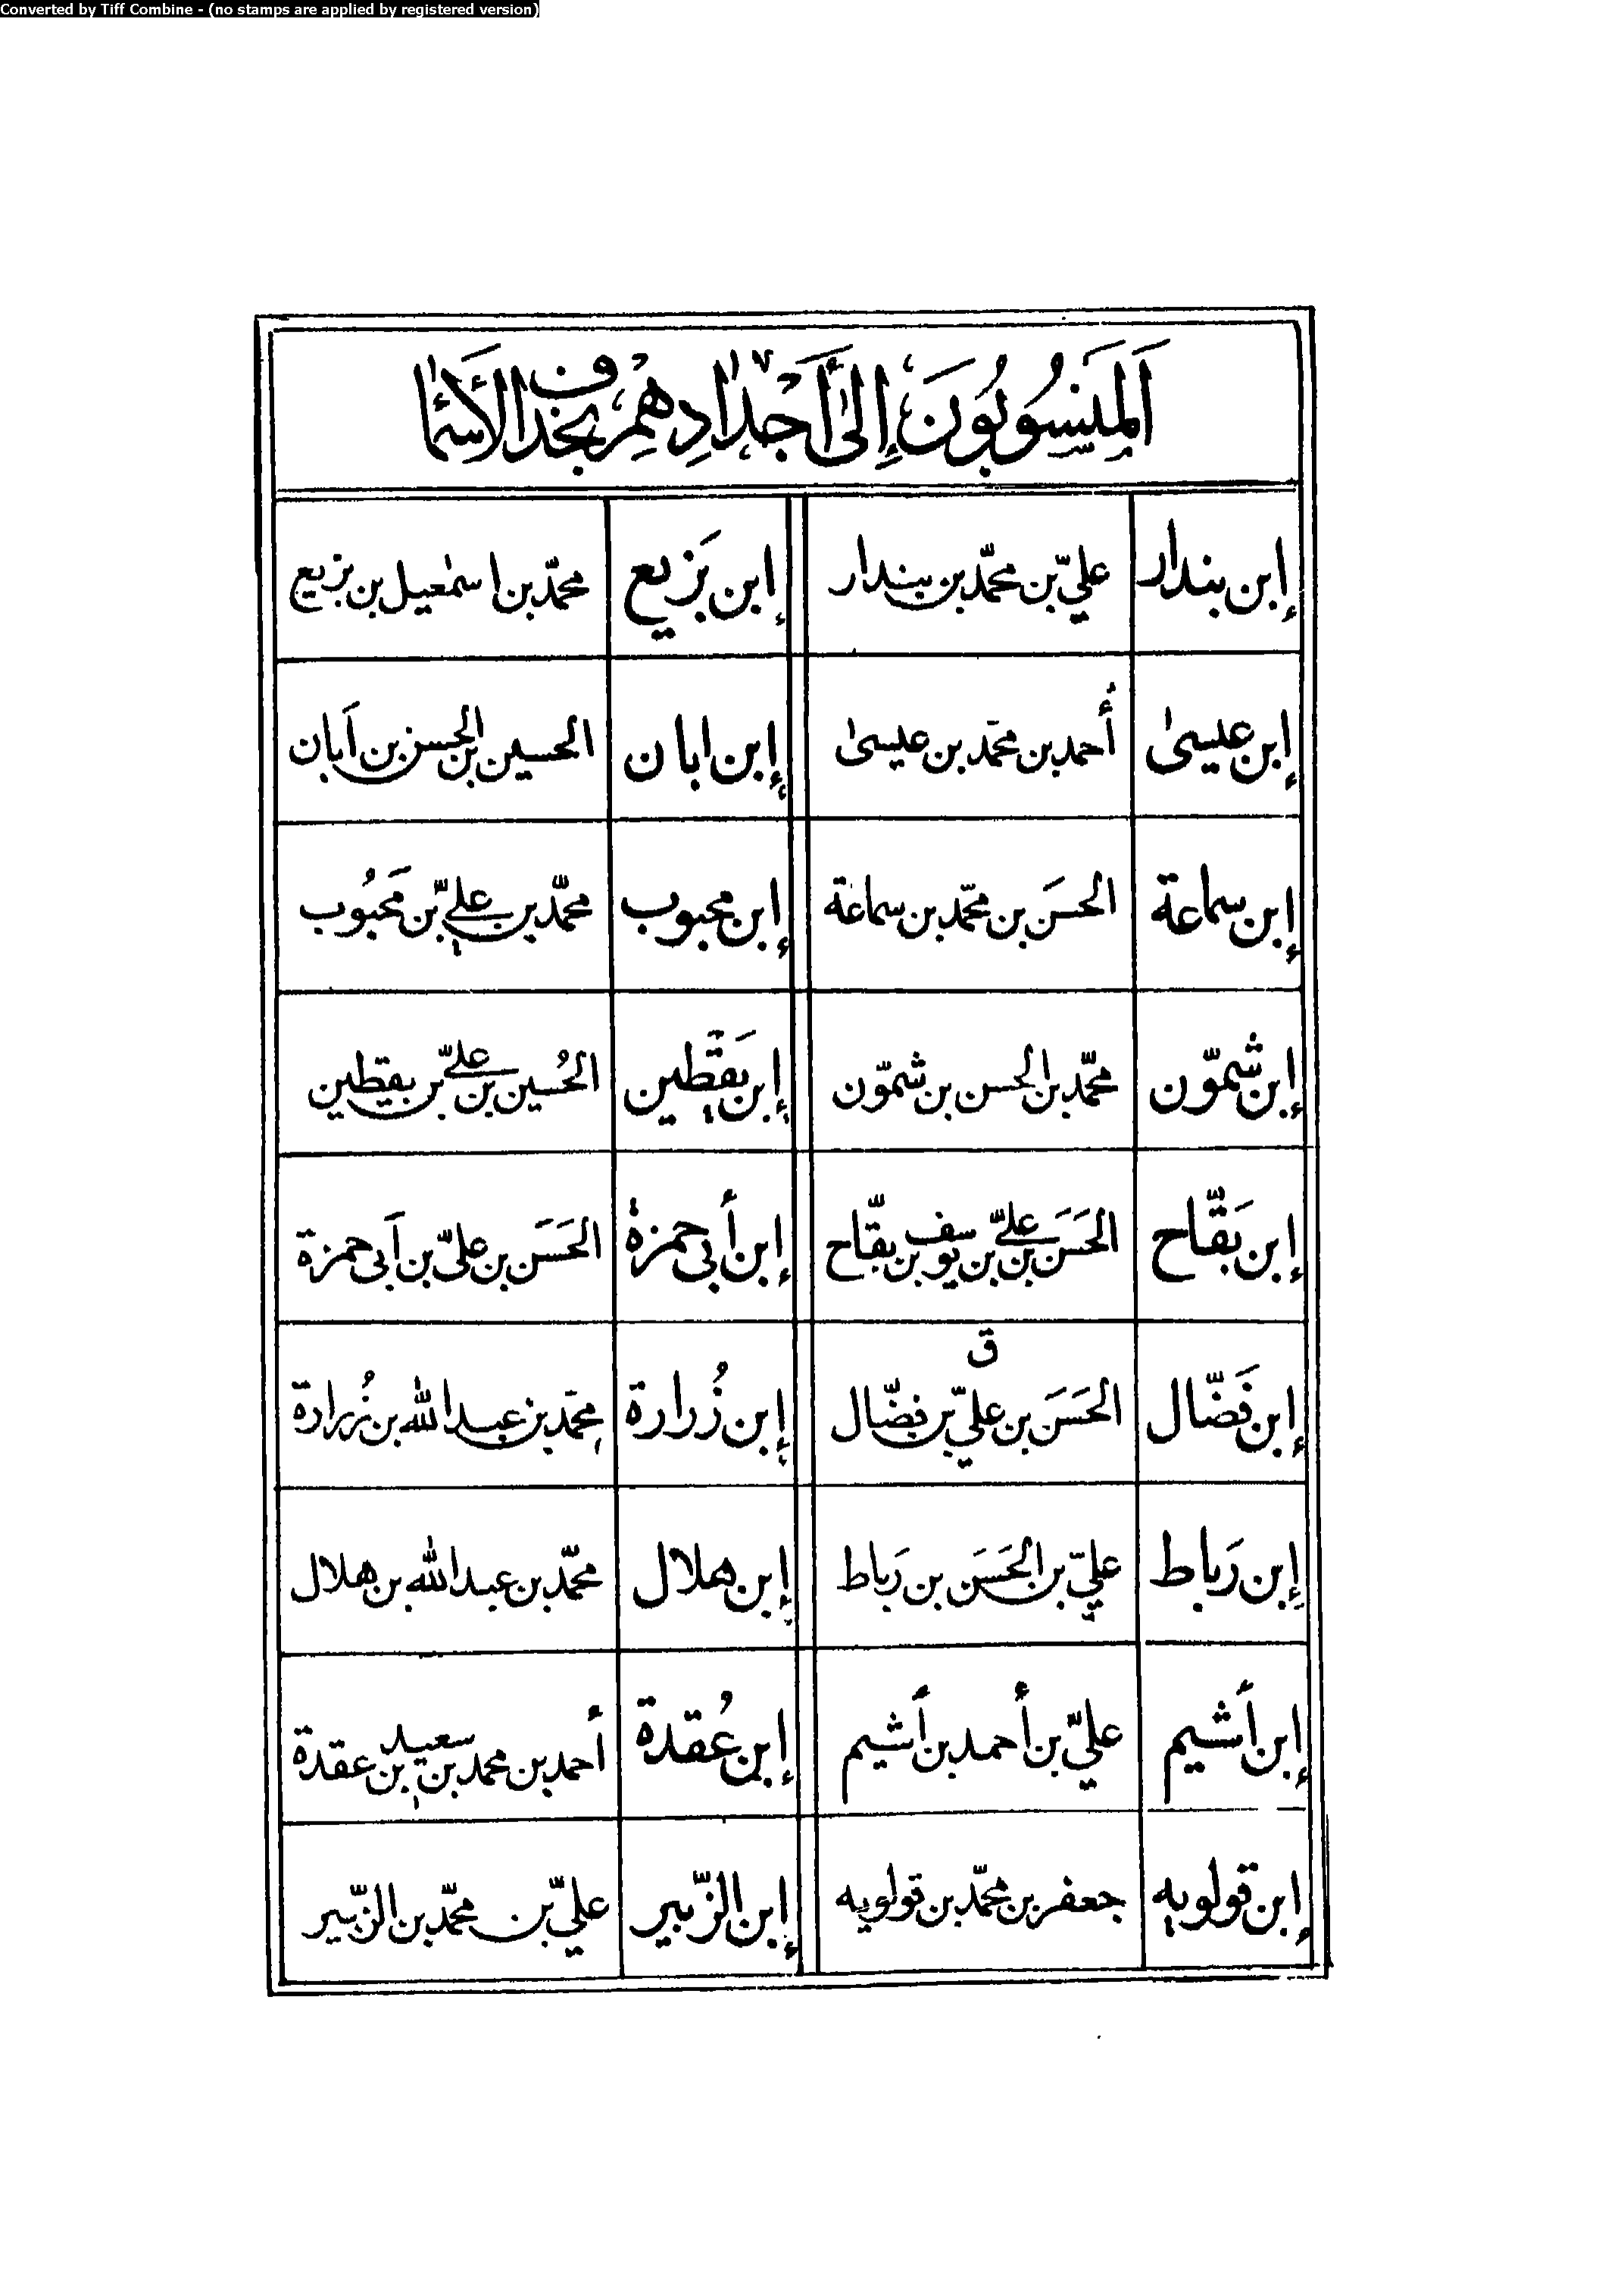 Converted by Tiff Combine - (no stamps are applied by registered version)
اَلْمَنسُوبُونَ إِلىٰ أَجْدٰادِهِمْ بحَذف الأَسمٰاء
إبن بندار علىّ بن محمّد بن بندار إبن بَزيع محمّد بن اسمٰعيل بن بزيع
إبن عيسىٰ أُحمد بن محمّد بن عيسىٰ إبن ابان الحسين بن الحسن بن اَبان
إبن سماعة الحسَن بن محمّد بن سماعة إبن محبوب محمّد بن علىّ بن مَحبُوب
إبن شمّون محمّد بن الحسن بن شمّون إبن يَقَطين الحُسين بن علىّ بن يقطين
إبن بَقّاح الحَسَن بن علىّ بن يوسف بن بقّاح إبن أبى حمزة الحَسَن بن علىّ بن اَبى حمزة
ق
إبن فَضّال الحَسَن بن علىّ بن فضّال إبن زُرارة محمّد بن عبد الله بن زُرارة
إبن رَباط علىّ بن الحَسَن بن رَباط إبن هلال محمّد بن عبد الله بن هلال
إبن أَشيم علىّ بن أحمد بن أَشيم إبن عُقدة أحمد بن محمد بن سعيد بن عقدة
إبن قولويه جعفر بن محمّد بن قولويه إبن الزّبير علىّ بن محمّد بن الزّبير